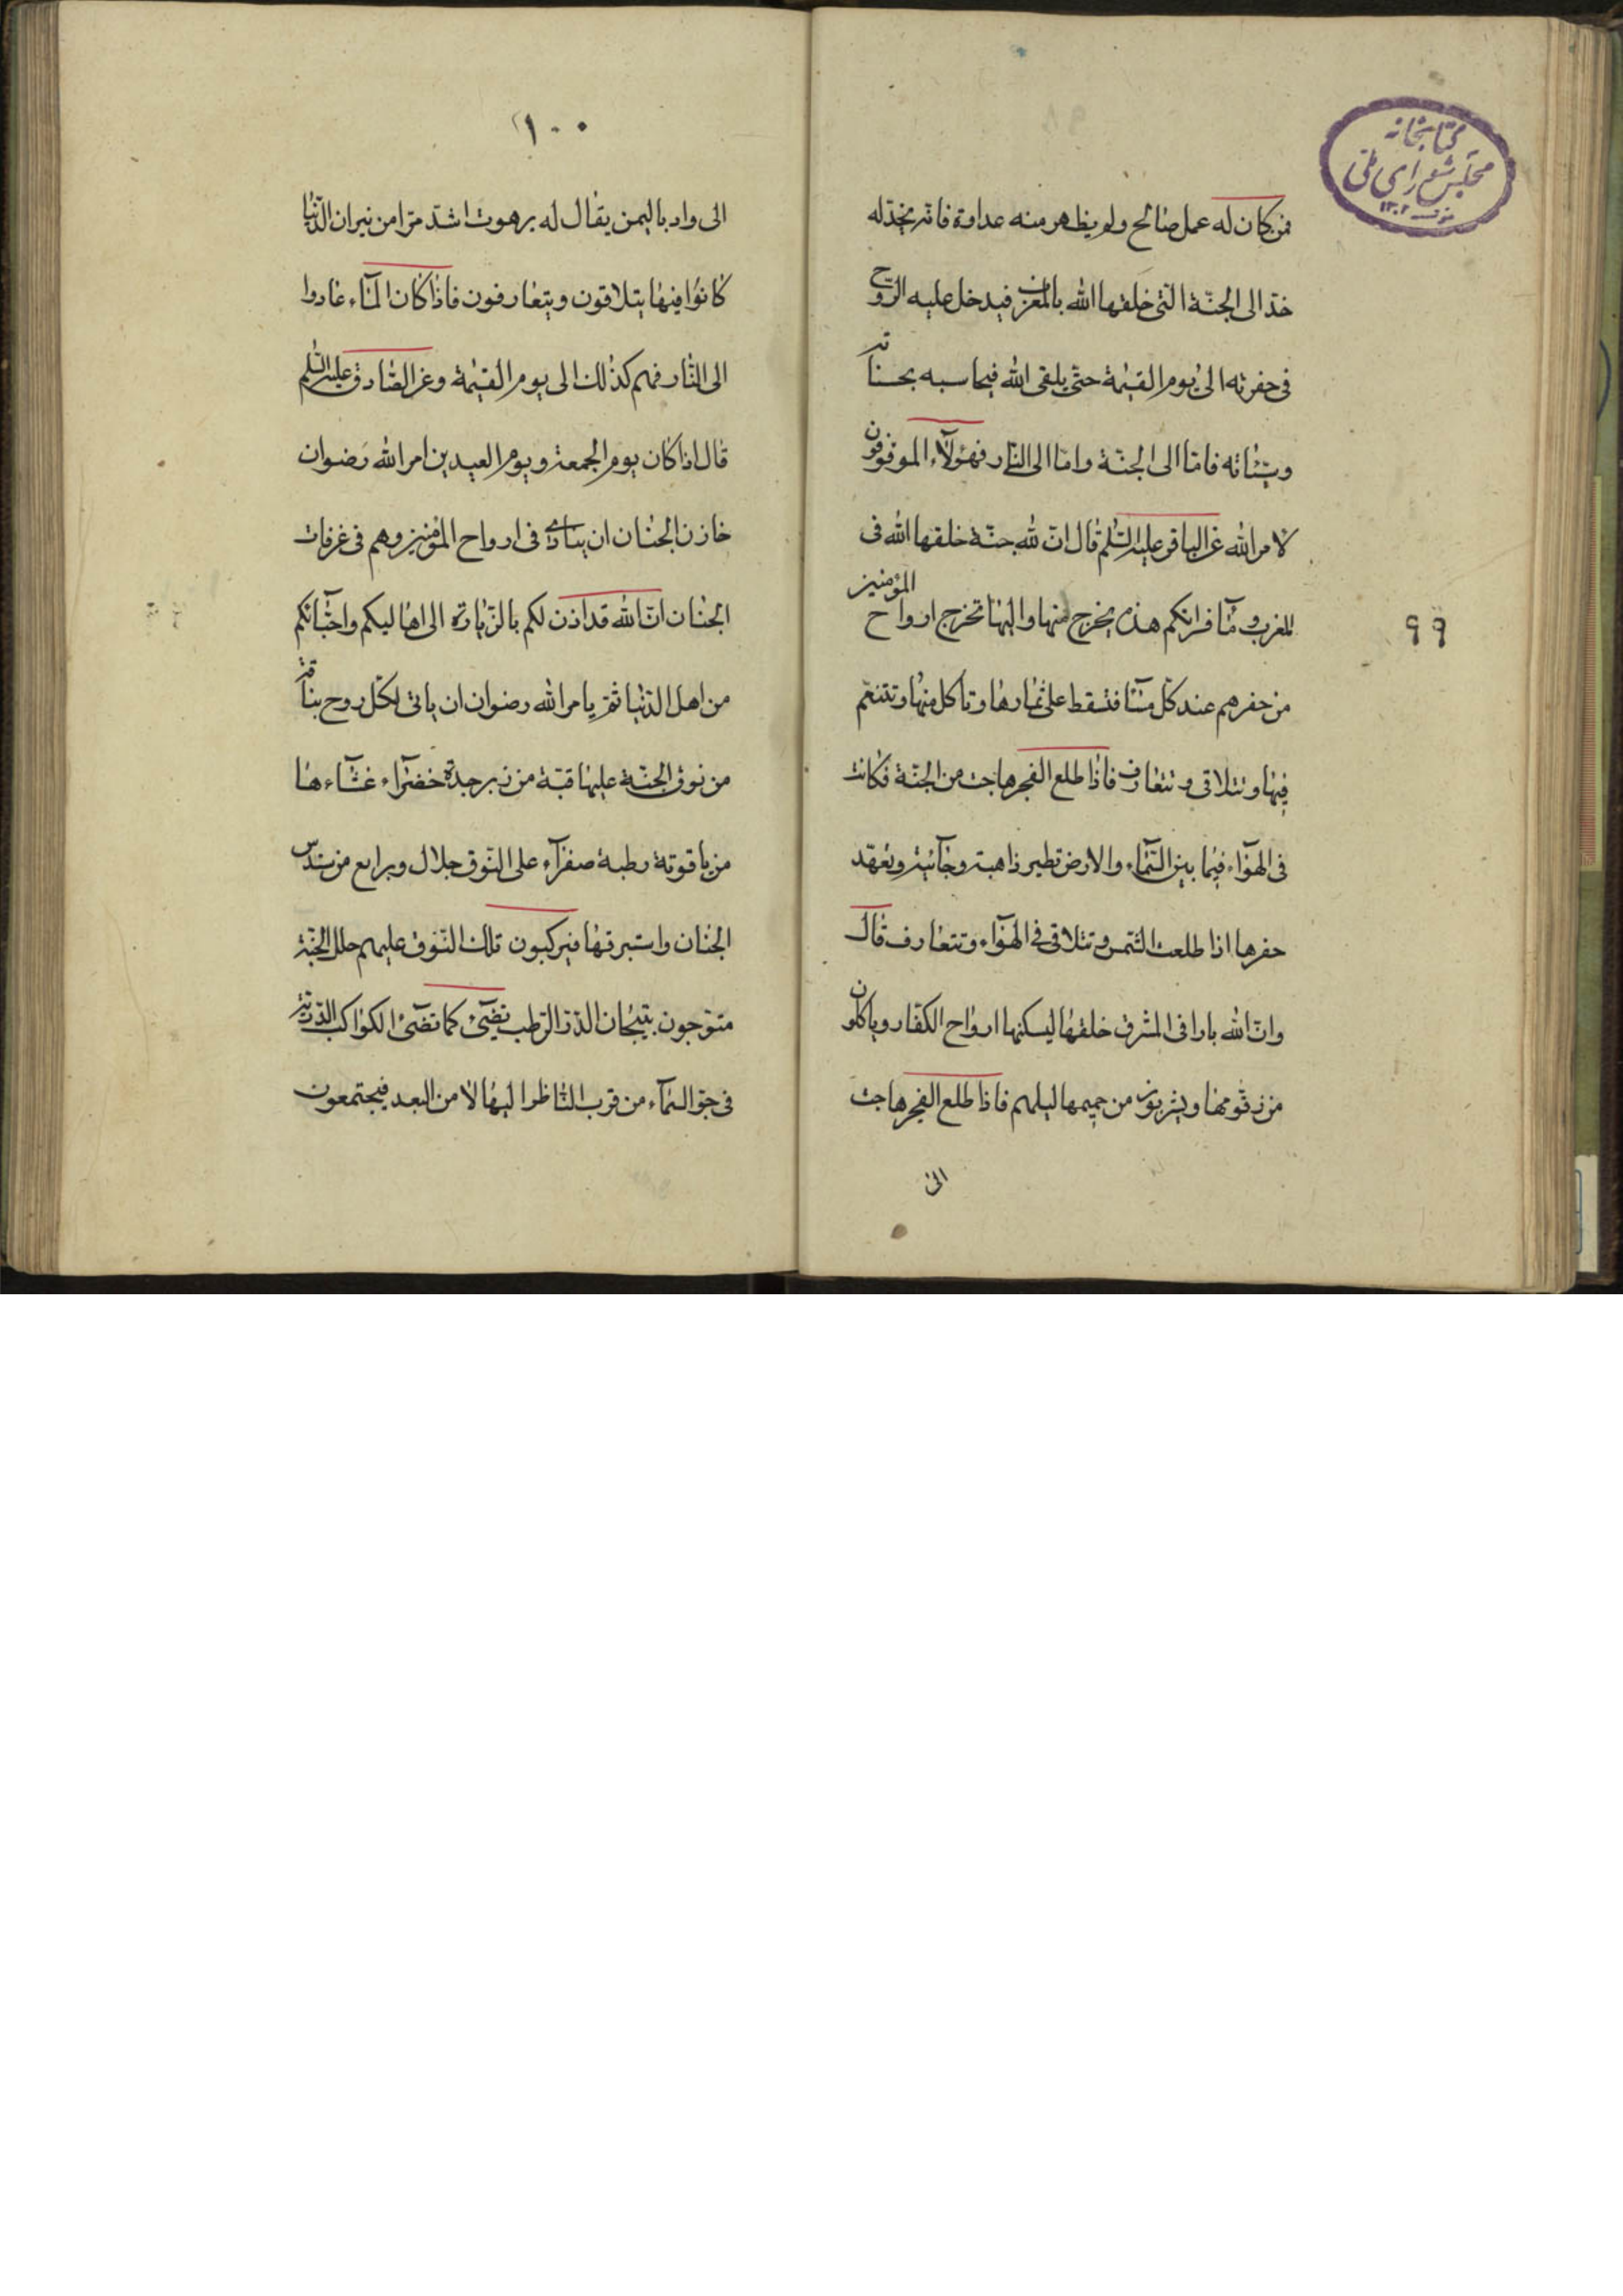 كتابخانه
مجلس شورای ملی
۱۳۰۲
فمن كان له عمل صالح ولم يظهر منه عداوة فانه يخدّ له
خدّ الى الجنّة التى خلقها الله بالمغرب فيدخل عليه الروح
فى حفرته الى يوم القيمة حتى يلقى الله فيحاسبه بحسناته
وسيّئاته فامّا الى الجنّة وامّا الى النّار فهؤلآء الموقوفون
لامر الله عن الباقر عليه السّلم قال انّ لله جنّة خلقها الله فى
المغرب ومآء فراتكم هذه يخرج منها واليها تخرج ارواح المؤمنين
من حفرهم عند كلّ مسآء فتسقط على ثمارها وتاكل منها وتتنعّم
فيها وتتلاقى وتتعارف فاذا طلع الفجر هاجت من الجنّة فكانت
فى الهوآء فيما بين السّمآء والارض تطير ذاهبة وجآئية وتعهد
حفرها اذا طلعت الشّمس وتتلاقى فى الهوآء وتتعارف قال
وانّ لله نارا فى المشرق خلقها ليسكنها ارواح الكفّار وياكلون
من زقومها ويشربون من حميمها ليلهم فاذا طلع الفجر هاجت
الى
۹۹
۱۰۰
الى واد باليمن يقال له برهوت اشدّ حرّا من نيران الدّنيا
كانوا فيها يتلاقون ويتعارفون فاذا كان المسآء عادوا
الى النّار فهم كذلك الى يوم القيمة وعن الصّادق عليه السّلم
قال اذا كان يوم الجمعة ويوم العيدين امر الله رضوان
خازن الجنان ان ينادى فى ارواح المؤمنين وهم فى غرفات
الجنان انّ الله قد اذن لكم بالزّيارة الى اهاليكم واحبّائكم
من اهل الدّنيا ثمّ يامر الله رضوان ان ياتى لكلّ روح بناقة
من نوق الجنّة عليها قبّة من زبرجدة خضرآء غشآءها
من ياقوتة رطبة صفرآء على النّوق جلال وبراقع من سندس
الجنان واستبرقها فيركبون تلك النّوق عليهم حلل الجنّة
متوّجون بتيجان الدّرّ الرّطب تضىٓء كما تضىٓء الكواكب الدّريّة
فى جوّ السّمآء من قرب النّاظر اليها لا من البعد فيجتمعون